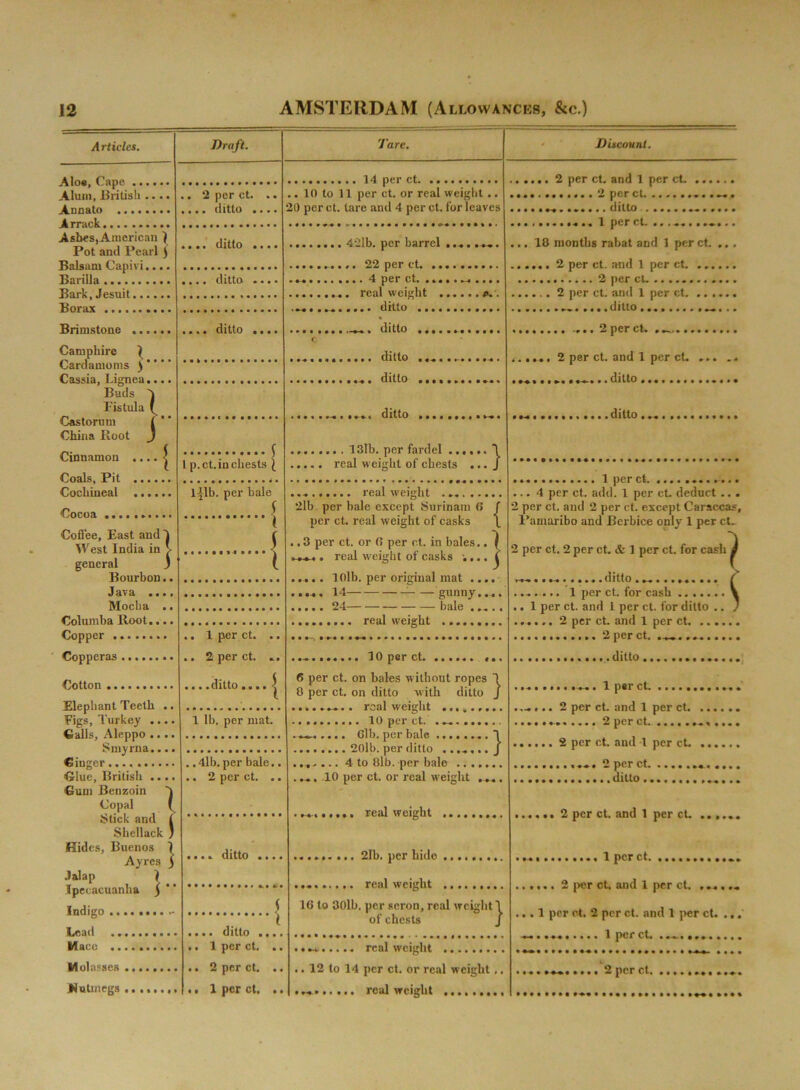 12 AMSTERDAM (Allowances, &c.)
Articles. Draft. Tare. Discount.
Aloe, Cape ...... .............. .......... 14 per ct. .......... ...... 2 per ct. and 1 per ct. ......
Alum, British .... .. 2 per ct. .. .. 10 to 11 per ct. or real weight .. ........... 2 per ct. ...........
Annato ........ .... ditto .... 20 per ct. tare and 4 per ct. for leaves ............ ditto ............
Arrack .......... .............. .............................. ............ 1 per ct. ............
Ashes, American } Pot and Pearl } .... ditto .... ......... 42lb. per barrel ........ ... 18 months rabat and 1 per ct. ...
Balsam Capivi.... .............. .......... 22 per ct. .......... ...... 2 per ct. and 1 per ct. ......
Barilla .......... .... ditto .... ........... 4 per ct. .......... ............ 2 per ct. ............
Bark, Jesuit ...... .............. ......... real weight ......... ...... 2 per ct. and 1 per ct. ......
Borax .......... .............. ............ ditto ............ ............ ditto ............
Brimstone ...... .... ditto .... ............ ditto ............ ............ 2 per ct. ............
Camphire } Cardamoms } .... .............. ............ ditto ............ ...... 2 per ct. and 1 per ct. ......
Cassia, Lignea.... .............. ............ ditto ............ ............ ditto ............
Buds
Fistula
Castorum
China Root } .. .............. ............ ditto ............ ............ ditto ............
Cinnamon .... { ............ { 1 p. ct. in chests { ........ 13lb. per fardel ...... } ..... real weight of chests ... } ..............................
Coals, Pit ...... .............. .............................. ............ 1 per ct. ............
Cochineal ...... 1½lb. per bale .......... real weight .......... ... 4 per ct. add. 1 per ct. deduct ...
Cocoa .......... ............ { 2lb. per bale except Surinam 6 { per ct. real weight of casks { 2 per ct. and 2 per ct. except Caraccas, Pamaribo and Berbice only 1 per ct.
Coffee, East and
West India in
general } ............ { .. 3 per ct. or 6 per ct. in bales.. } ...... real weight of casks ..... } 2 per ct. 2 per ct. & 1 per ct. for cash }
Bourbon.. .............. ..... 10lb. per original mat .... ............ ditto ............
Java .... .............. ...... 14— — — — —gunny..... ........ 1 per ct. for cash .......
Mocha .. .............. ..... 24— — — — —bale ...... .. 1 per ct. and 1 per ct. for ditto .. }
Columba Root.... .............. ......... real weight ......... ...... 2 per ct. and 1 per ct. ......
Copper ........ .. 1 per ct. .. .............................. ............ 2 per ct. ............
Copperas ........ .. 2 per ct. .. .......... 10 per ct. .......... ............ ditto ............
Cotton .......... ....ditto .... { 6 per ct. on bales without ropes } 8 per ct. on ditto with ditto } ............ 1 per ct. ............
Elephant Teeth .. .............. ......... real weight ......... ...... 2 per ct. and 1 per ct. ......
Figs, Turkey .... 1 lb. per mat. .......... 10 per ct. .......... ............ 2 per ct. ............
Galls, Aleppo ....
Smyrna.... .............. ........ 61b. per bale ........ } ........ 201b. per ditto ....... } ...... 2 per ct. and 1 per ct. ......
Ginger .......... ..4lb. per bale.. ....... 4 to 8lb. per bale ....... ............ 2 per ct. ............
Glue, British .... .. 2 per ct. .. .... 10 per ct. or real weight .... ............ ditto ............
Gum Benzoin
Copal
Stick and
Shellack } .............. ......... real weight ......... ...... 2 per ct. and 1 per ct. ......
Hides, Buenos } Ayres } .... ditto .... ......... 2lb. per hide ......... ............ 1 per ct. ............
Jalap } Ipecacuanha } .. .............. ......... real weight ......... ...... 2 per ct. and 1 per ct. ......
Indigo .......... ............ { 16 to 30lb. per seron, real weight } of chests } ... 1 per ct. 2 per ct. and 1 per ct. ...
Lead .......... .... ditto .... .............................. ............ 1 per ct. ............
Mace .......... .. 1 per ct. .. ......... real weight ......... ..............................
Molasses ........ .. 2 per ct. .. .. 12 to 14 per ct. or real weight .. ............ 2 per ct. ............
Nutmegs ........ .. 1 per ct. .. ......... real weight ......... ..............................